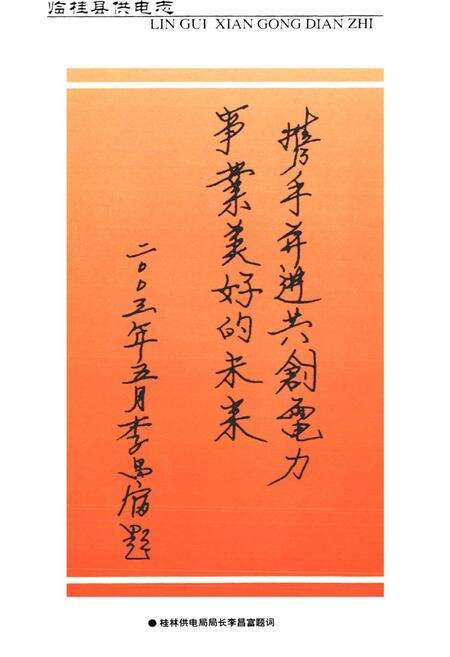 临桂县供电志
LIN GUI XIAN GONG DIAN ZHI
携手并進共創電力
事業美好的未来
二〇〇三年五月李昌富題
●桂林供电局局长李昌富题词